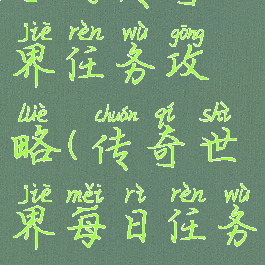 jiē rèn wù gōng
界任务攻
luè chuán qí shì
略(传奇世
jiē měi rì rèn wù
界每日任务